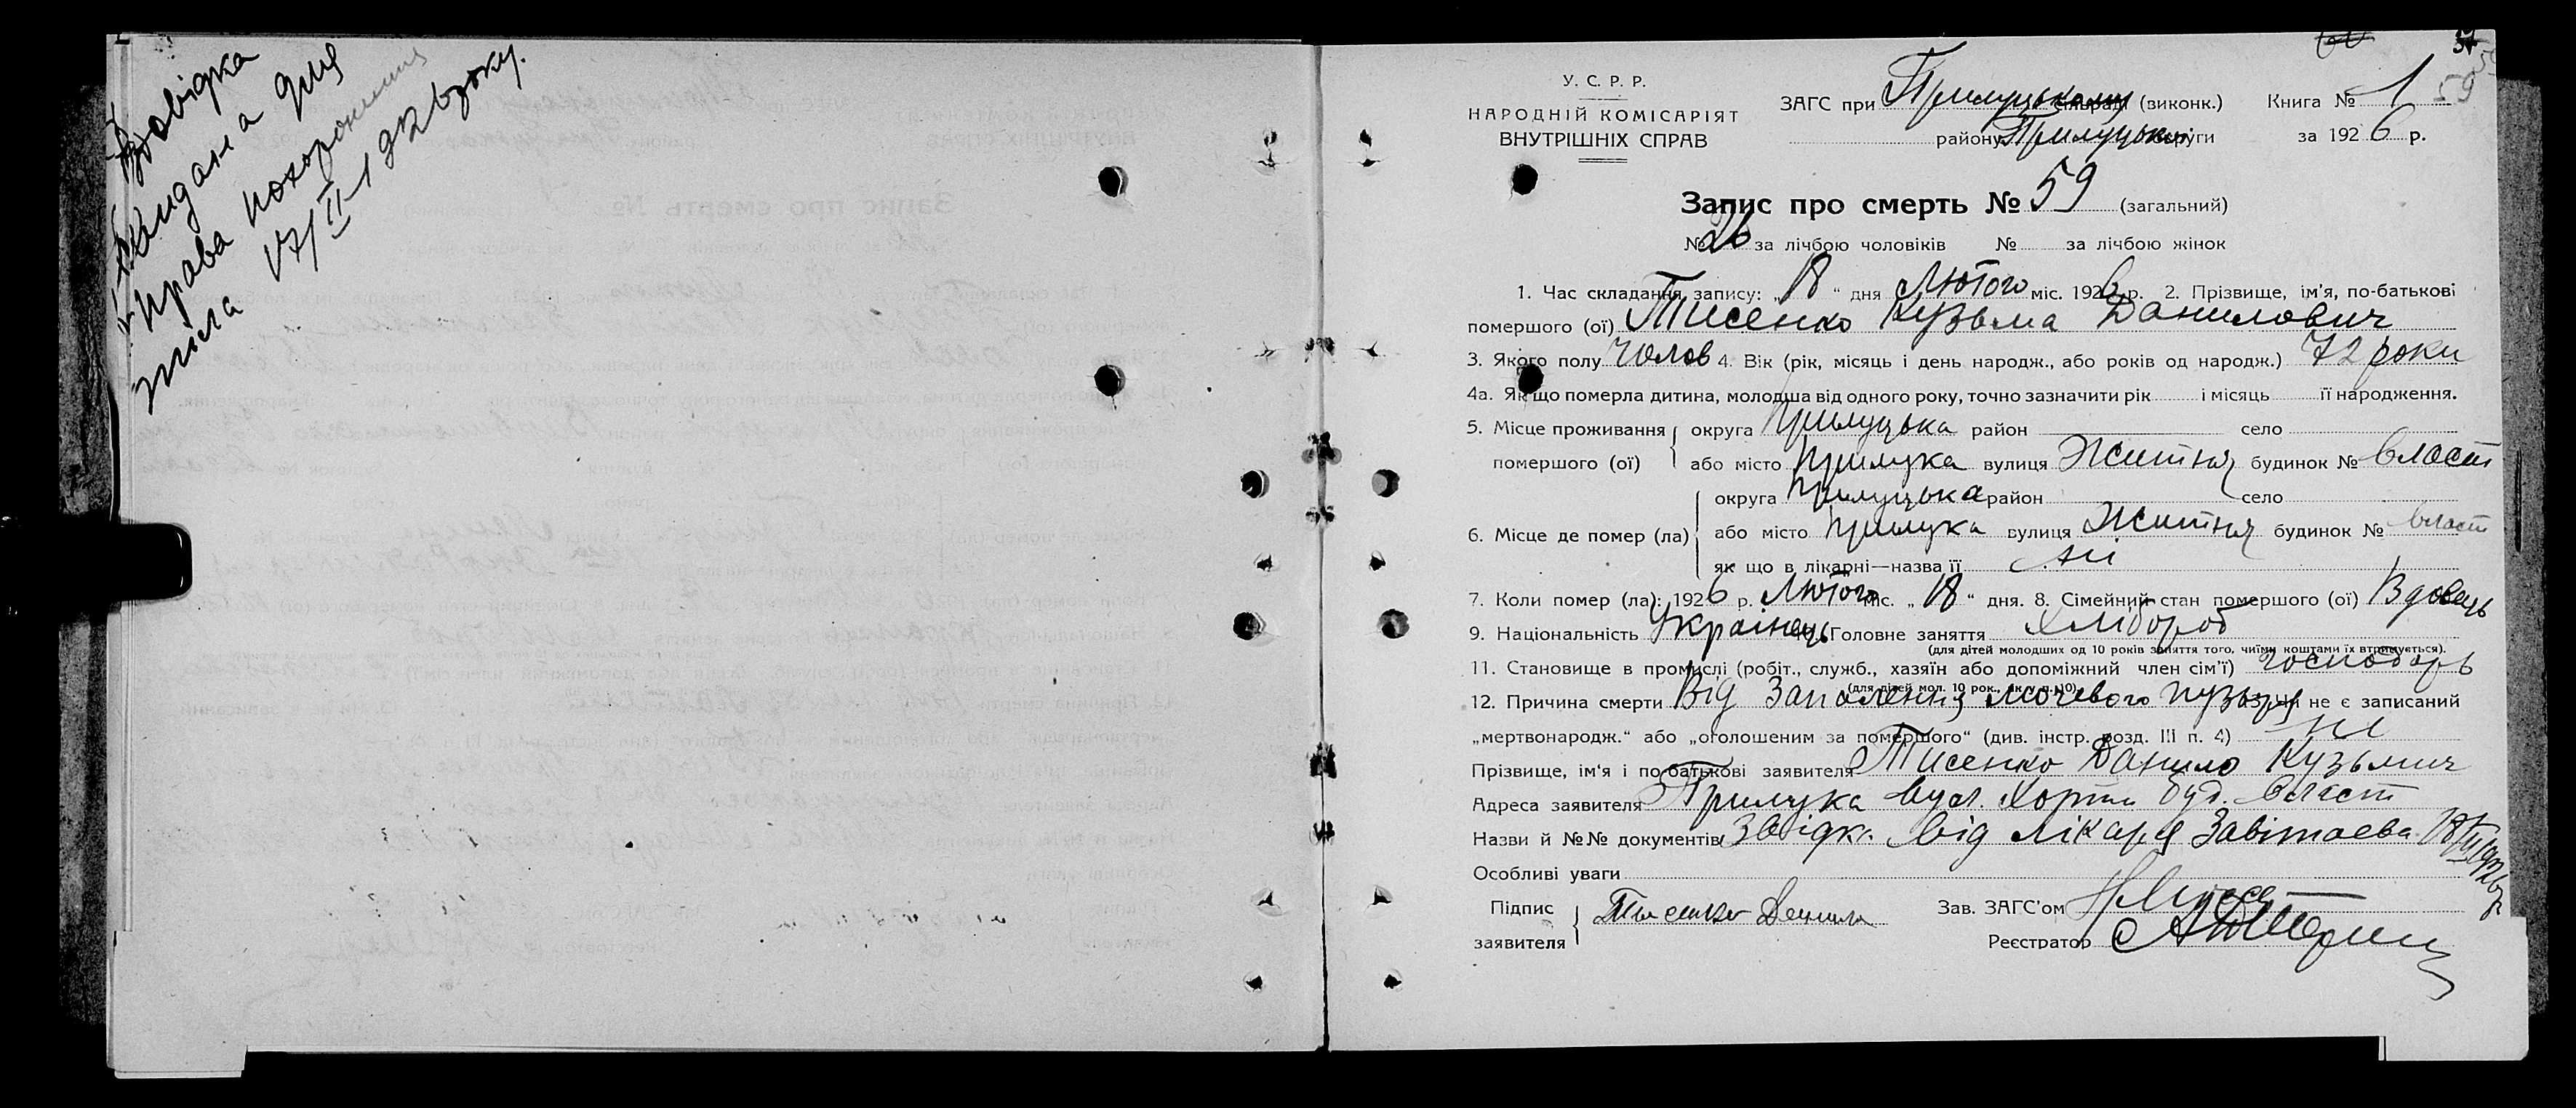 Довідка
видана для
права похоронення
тіла 17/II–1926 року.
59
У. С. Р. Р.
НАРОДНІЙ КОМІСАРІЯТ
ВНУТРІШНІХ СПРАВ
ЗАГС при Прилуцькому (виконк.) Книга № 1
району Прилуцької округи за 1926 р.
Запис про смерть № 59 (загальний)
№ 26 за лічбою чоловіків № за лічбою жінок
1. Час складання запису: „18“ дня Лютого міс. 1926 р. 2. Прізвище, ім'я, по-батькові
помершого (ої) Тисенко Кузьма Данилович
3. Якого полу Чолов 4. Вік (рік, місяць і день народж., або років од народж.) 72 роки
4а. Як що померла дитина, молодша від одного року, точно зазначити рік і місяць її народження.
5. Місце проживання округа Прилуцька район село
помершого (ої) або місто Прилука вулиця Житня будинок № власт
округа Прилуцька район село
6. Місце де помер (ла) або місто Прилука вулиця Житня будинок № власт
як що в лікарні—назва її ні
7. Коли помер (ла): 1926 р. Лютого міс. „18“ дня. 8. Сімейний стан помершого (ої) Вдовець
9. Національність Українець Головне заняття Хлібороб
(для дітей молодших од 10 років заняття того, чиїми коштами їх втримується).
11. Становище в промислі (робіт., служб., хазяїн або допоміжний член сім'ї) господарь
(для дітей мол. 10 рок., як у п. 10)
12. Причина смерти Від запалення мочевого пузыря чи не є записаний
„мертвонародж.“ або „оголошеним за помершого“ (див. інстр. розд. III п. 4) ні
Прізвище, ім'я і по-батькові заявителя Тисенко Данило Кузьмич
Адреса заявителя Прилука вул. буд. власт
Назви й №№ документів Звідк. від лікаря Завітаєва 18/II 1926 р
Особливі уваги
Підпис
заявителя Тисенко Данило
Зав. ЗАГС'ом
Реєстратор